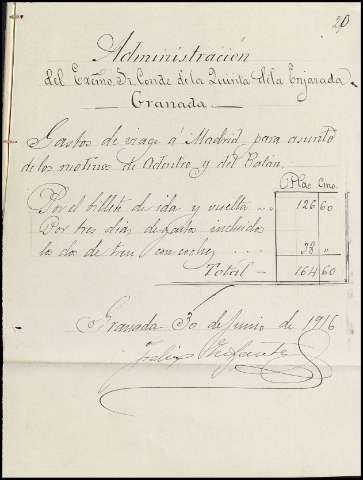 20
Administración
del Excmo. Sr. Conde de la Quinta de la Enjarada
Granada
Gastos de viage á Madrid para asunto
de los molinos de Adentro y del Batán.
Ptas Cmos.
Por el billete de ida y vuelta .. 126 60
Por tres dias de gasto incluidos
los dos de tren con coches .... 38 "
Total - 164 60
Granada 30 de Junio de 1916
Felix Infante